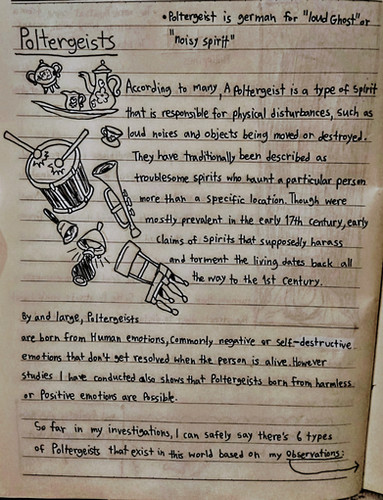 • Poltergeist is german for "loud Ghost" or
"noisy spirit"
Poltergeists
According to many, A Poltergeist is a type of spirit
that is responsible for physical disturbances, such as
loud noises and objects being moved or destroyed.
They have traditionally been described as
troublesome spirits who haunt a particular person
more than a specific location. Though were
mostly prevalent in the early 17th century, early
claims of spirits that supposedly harass
and torment the living dates back all
the way to the 1st century.
By and large, Poltergeists
are born from Human emotions, commonly negative or self-destructive
emotions that don't get resolved when the person is alive. However
studies I have conducted also shows that Poltergeists born from harmless
or Positive emotions are Possible.
So far in my investigations, I can safely say there's 6 types
of Poltergeists that exist in this world based on my observations: